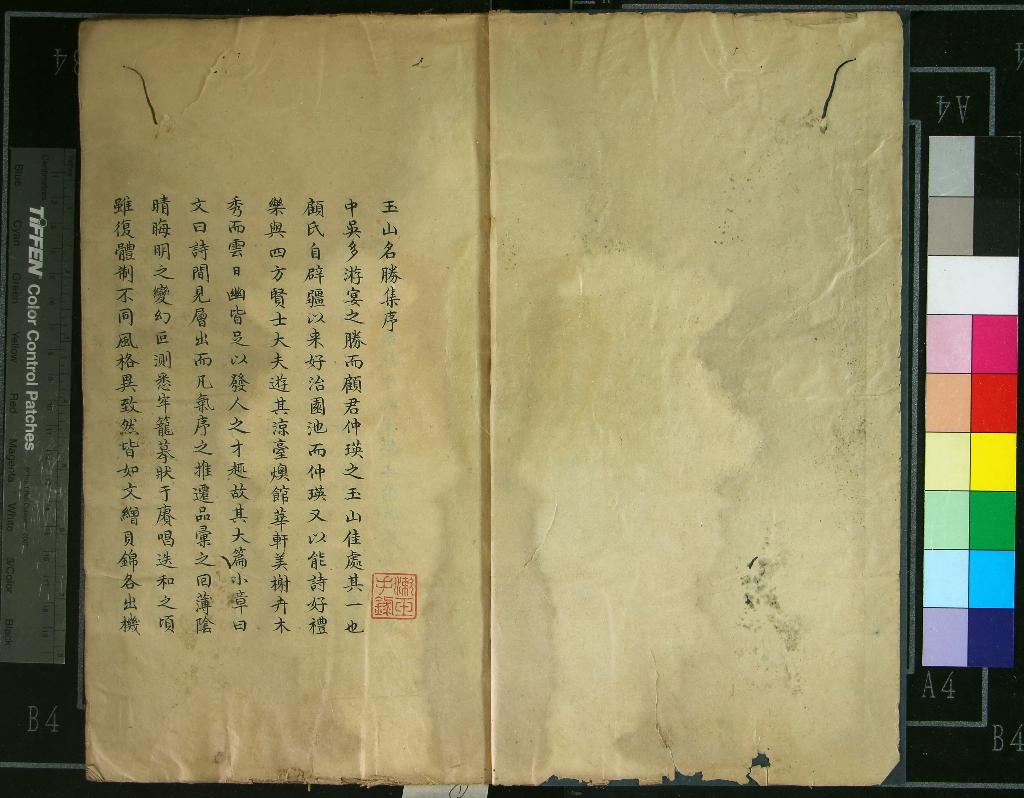 玉山名勝集序
中吳多游宴之勝而顧君仲瑛之玉山佳處其一也
顧氏自辟疆以来好治園池而仲瑛又以能詩好禮
樂與四方賢士大夫遊其涼臺燠館華軒美榭卉木
秀而雲日幽皆足以發人之才趣故其大篇小章曰
文曰詩間見層出而凡氣序之推遷品彙之回薄陰
晴晦明之變幻叵測悉牢籠摹狀于賡唱迭和之頃
雖復體制不同風格異致然皆如文繒貝錦各出機
TIFFEN Color Control Patches
Blue Cyan Green Yellow Red Magenta White 3/Color Black
B4
A4
A4
B4